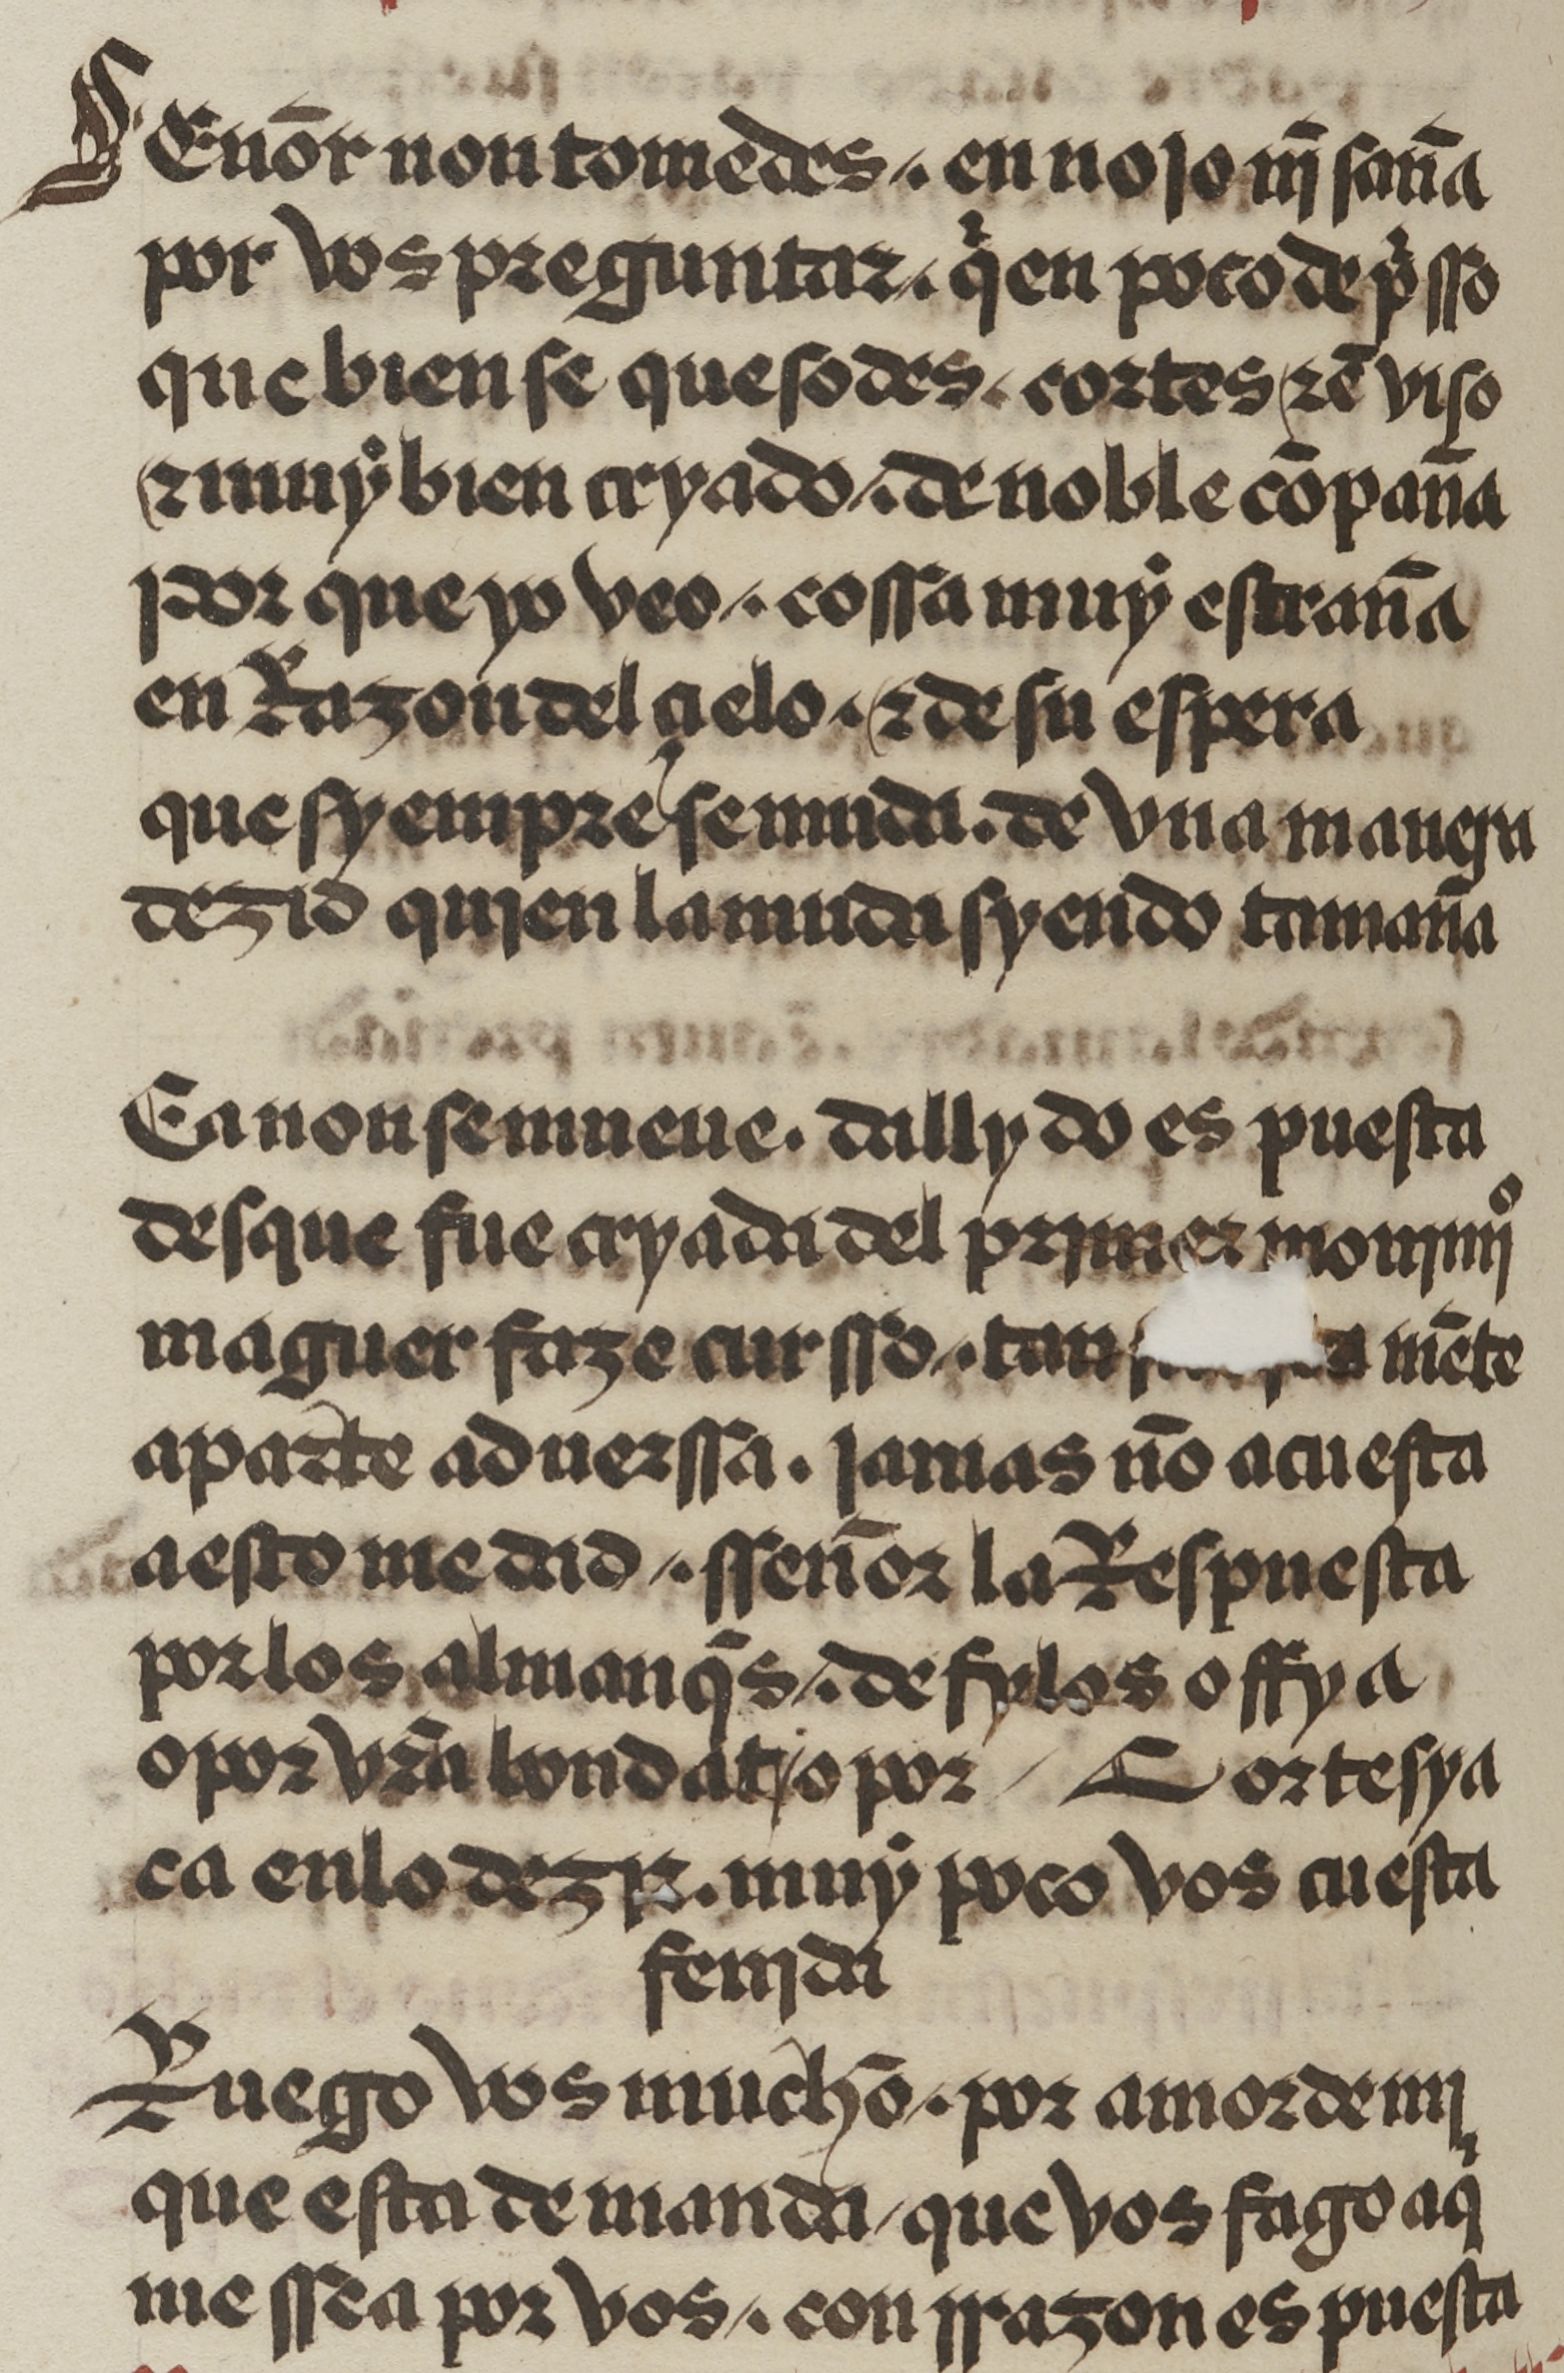 SEnõr non tomedes ./. en nojo nj̃ sana͂
por vos preguntar ./. qͥ en poco de pͥsso
que bien se que sodes . cortes ⁊ eͤ viso
⁊ muy bien cryado ./. de noble cõpan͂a
por que yo veo ./. cossa muy estran͂a
en Razon del çielo . ⁊ de su espera
que syempre se muda . de vna manera
dezid quien la muda syendo taman͂a
Ca non se mueue . dally do es puesta
desque fue cryada del primer mouimjº
maguer faze cursso ./. tan mẽte
a parte aduerssa . jamas nõ acuesta
a esto me dad ./. ssen͂or la Respuesta
por los almanq̃s ./. de fylosoffya
o por vr̃a bondat / o por / Cortesya
ca en lo dezir . muy poco vos cuesta
fenjda
Ruego vos muchõ ./. por amor de mj
que esta demanda / que vos fago aqͥ
me ssea por vos ./. con rrazon espuesta